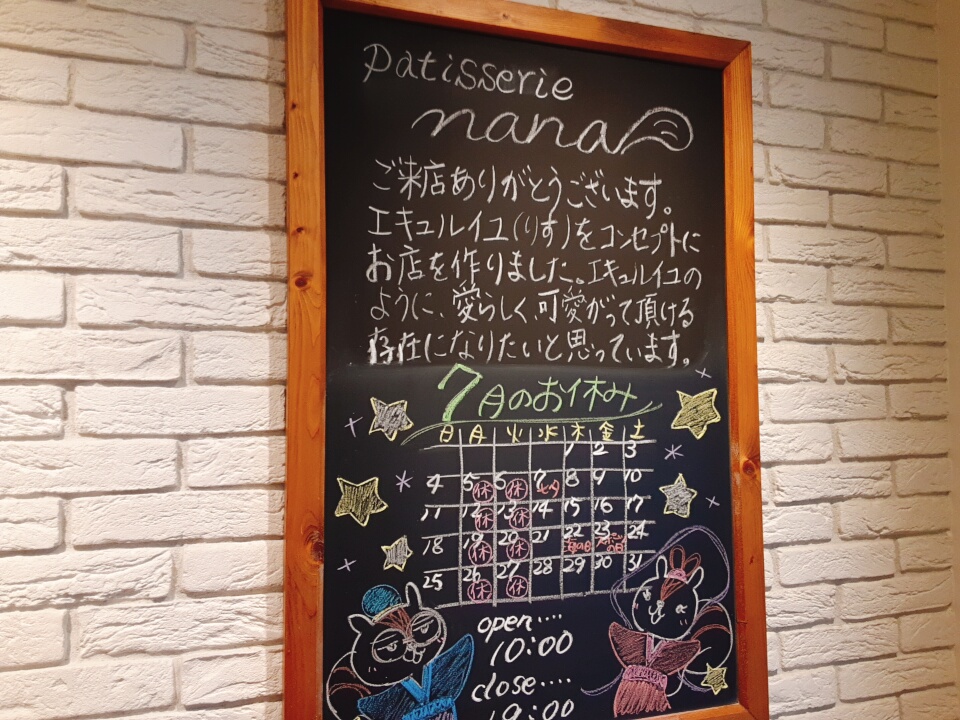 Patisserie
nana
ご来店ありがとうございます。
エキュルイユ(りす)をコンセプトに
お店を作りました。エキュルイユの
ように、愛らしく、可愛がって頂ける
存在になりたいと思っています。
7月のお休み
日 月 火 水 木 金 土
1 2 3
4 5 休 6 休 7 七夕 8 9 10
11 12 休 13 休 14 15 16 17
18 19 休 20 休 21 22 海の日 23 スポーツの日 24
25 26 休 27 休 28 29 30 31
open....
10:00
close....
19:00